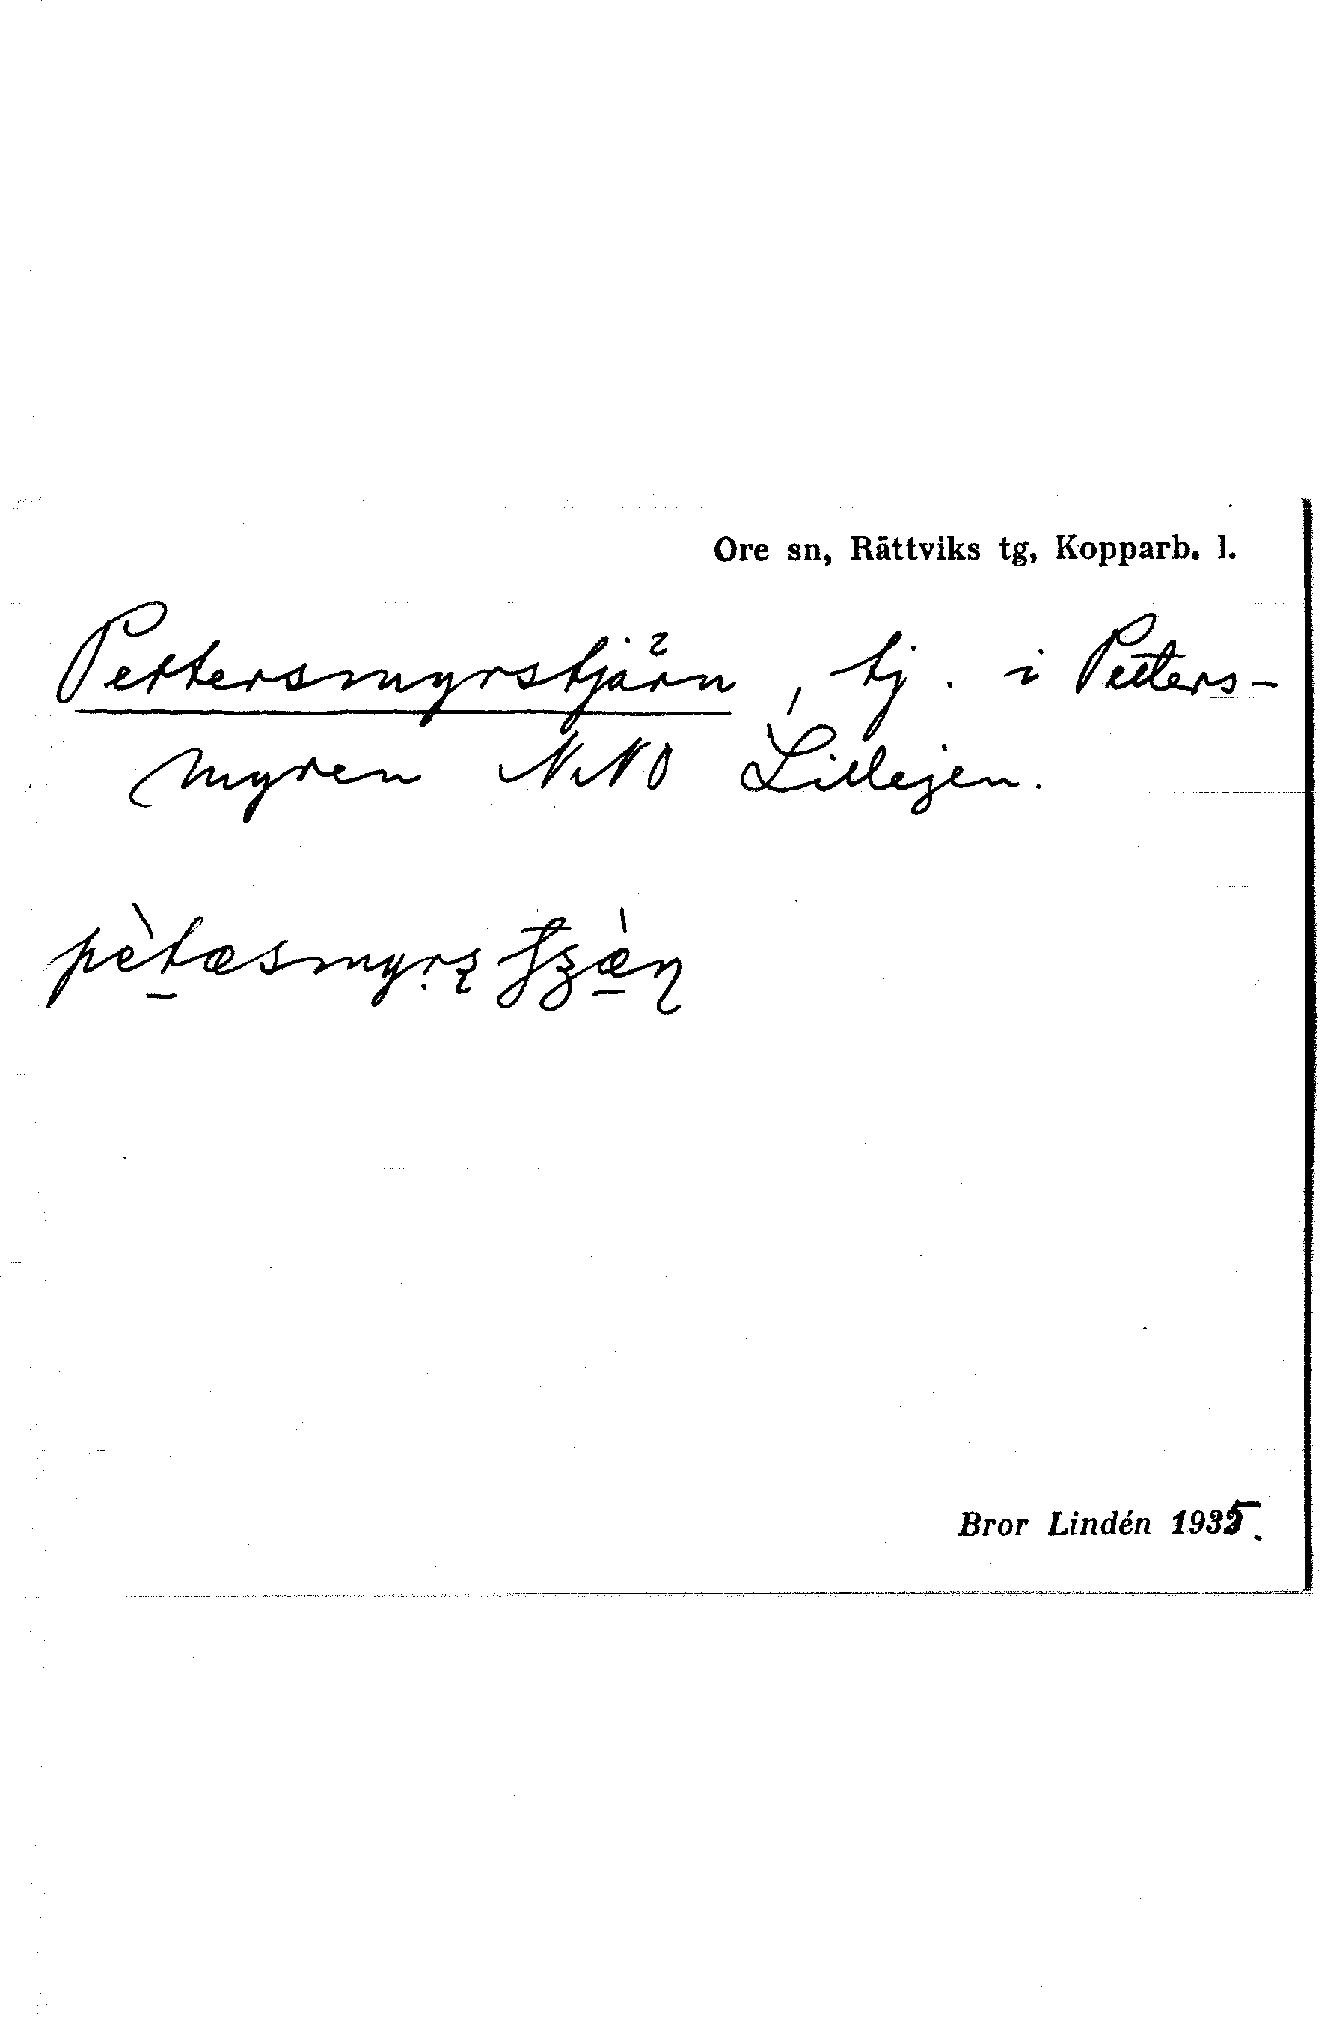 Ore sn, Rättviks tg, Kopparb. l.
Pettersmyrstjärn, tj. i Petters-
myren NNO Lillejen.
Bror Lindén 1935.